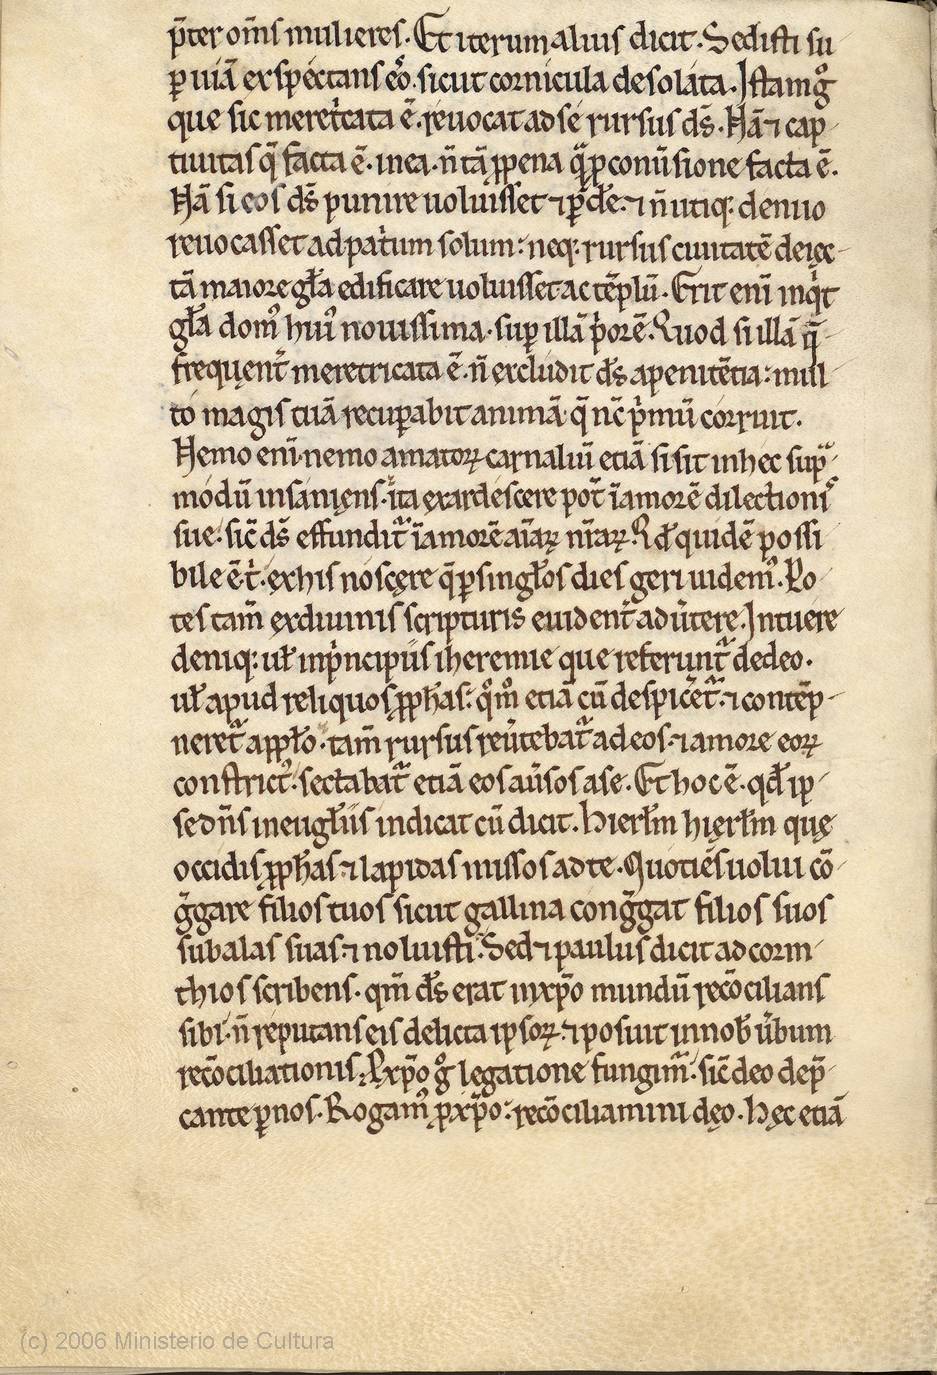 p̄ter om̄s mulieres. Et iterum alius dicit. Sedisti su
ꝑ uiā exspectans eo᷒. sicut cornicula desolata. Istam gͦ
que sic meret͛cata ē. reuocat ad se rursus ds̄. Nā ⁊ cap-
tiuitas q̄ facta ē. in ea. n̄ tā ꝓ pena q̄ ꝓ conu͛sione facta ē.
Nā si eos ds̄ punire uoluisset ⁊ ꝑd̄e. ⁊ n̄ utiq; denuo
reuocasset ad pat͛um solum: neq; rursus ciuitatē deiec-
tā maiore gl̄a edificare uoluisset ac tēplū. Erit eni inqͥt
gl̄a domꝰ huiꝰ nouissima. suꝑ illā pͥorē. Quod si illā q̄
frequent͛ meretricata ē. n̄ excludit ds̄ a penitētia: mul-
to magis tuā recuꝑabit animā q̄ nc̄ pͥmū corruit.
Nemo eni. nemo amatoꝝ carnaliū etiā si sit in hec supᷓ
modū insaniens. ita exardescere pot͛ ī amorē dilectionis
sue. sic̄ ds̄ effunditᷓ ī amorē aīaꝝ nr̄aꝝ. Qd̄ quidē possi
bile ē t͛. ex his noscere q̄ ꝑ singl̄os dies geri uidemꝰ. Po-
tes tam̄ ex diuinis scripturis euident͛ adu͛tere. Intuere
deniq; ul̄ in pͥncipiis iheremie que referuntᷓ de deo.
ul̄ apud reliquos ꝓph̄as. qͦm̄ etiā cū despicet͛. ⁊ contēp-
neret͛ a pplo. tam̄ rursus reu͛tebatᷓ ad eos. ⁊ amore eoꝝ
constrictꝰ. sectabatᷓ etiā eos au͛sos a se. Et hoc ē. qd̄ ip-
se dn̄s in eugl̄iis indicat cū dicit. Hierl̄m hierl̄m quę
occidis ꝓph̄as. ⁊ lapidas missos ad te. Quotiēs uolui cō-
g͛gare filios tuos sicut gallina cong͛gat filios suos
sub alas suas. ⁊ noluisti. Sed ⁊ paulus dicit ad corin-
thios scribens. qm̄ ds̄ erat in xp̄o mundū recōcilians
sibi. n̄ reputans eis delicta ipsoꝝ. ⁊ posuit in nob̄ u͛bum
recōciliationis. P xp̄o gͦ legatione fungim͛. sic̄ deo dep̄-
cante ꝑ nos. Rogamꝰ ꝓ xp̄o: recōciliamini dęo. Hęc etiā